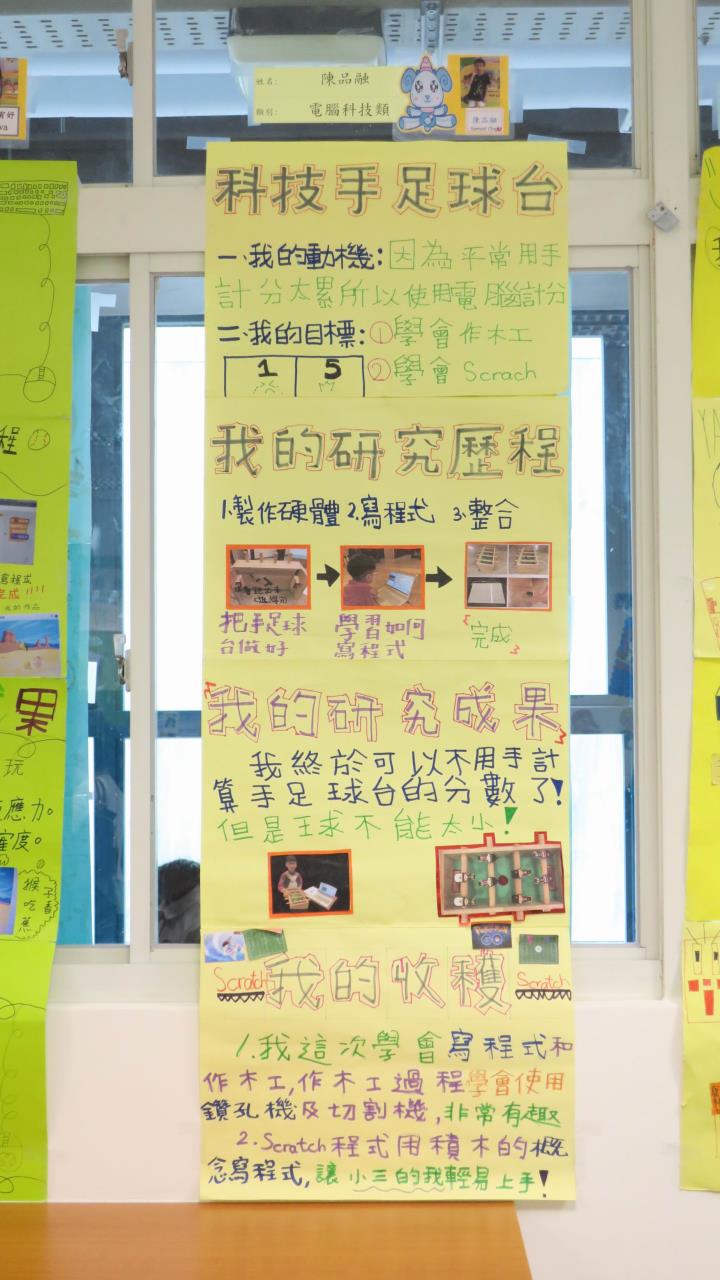 姓名: 陳品融
類別: 電腦科技類
陳品融
科技手足球台
一、我的動機:因為平常用手
計分太累所以使用電腦計分
二、我的目標:①學會作木工
②學會Scrach
1 5
我的研究歷程
1.製作硬體 2.寫程式 3.整合
把手足球
台做好
學習如何
寫程式
完成
我的研究成果
我終於可以不用手計
算手足球台的分數了!
但是球不能太小!
Scratch 我的收穫 Scratch
1.我這次學會寫程式和
作木工,作木工過程學會使用
鑽孔機及切割機,非常有趣
2.Scratch程式用積木的概
念寫程式,讓小三的我輕易上手!
程
寫程式
完成!!!!
我的作品
果
玩
反應力。
確度。
猴子
吃香
蕉